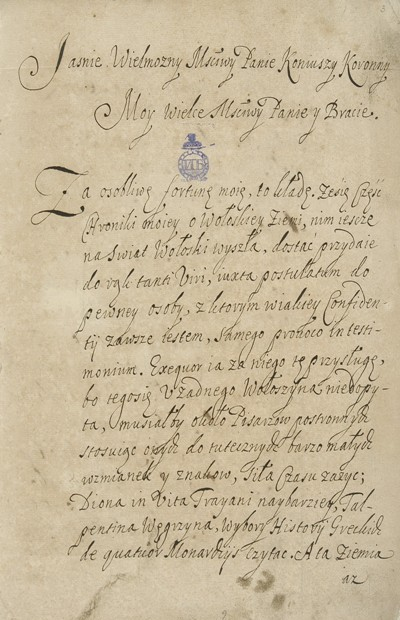 3
Jasnie Wielmozny Mściwy Panie Koniuszy Koronny
Moy Wielce Mściwy Panie y Bracie.
Za osobliwę fortunę moię, to kładę. Żesię Część
Chroniki moiey o Wołoskiey Ziemi, nim ieszcze
na Swiat Wołoski wyszła, dostać przydaie
do rąk tanti Viri, iuxta postulatum do
pewney osoby, z ktorym wialkiey Confiden-
tij zawsze iestem, samego provoco in testi-
monium. Exequor ia za niego tę przysługę,
bo tegosię Użadnego Wołoszyna niedopy-
ta, musiałby około Pisarzow postronnych
stosuiąc onych do tutecznych barzo małych
wzmianek y znakow, siła Czasu zażyć;
Diona in Vita Trayani naybarziey, Tal-
pentina Węgrzyna, wybory Historij Greckich
de quatuor Monarchijs Czytac. A ta Ziemia
iż